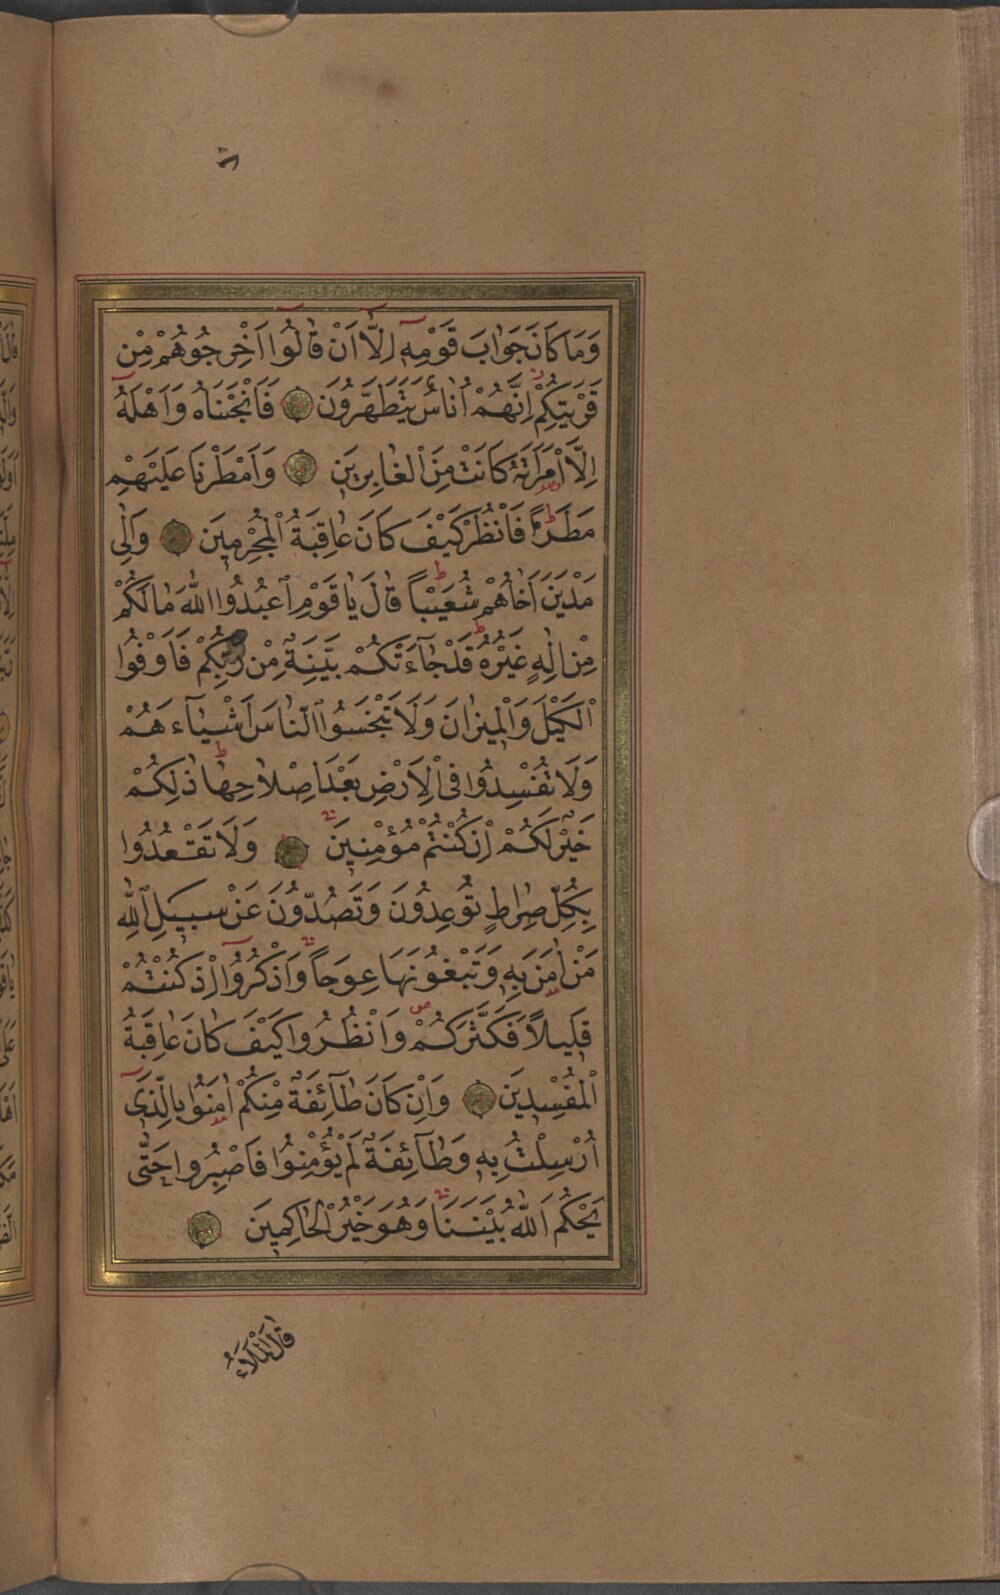 وَمَا كَانَ جَوَابَ قَوْمِهِ اِلَّا اَنْ قَالُوا اَخْرِجُوهُمْ مِنْ
قَرْيَتِكُمْ اِنَّهُمْ اُنَاسٌ يَتَطَهَّرُونَ فَاَنْجَيْنَاهُ وَاَهْلَهُ
اِلَّا امْرَاَتَهُ كَانَتْ مِنَ الْغَابِرِينَ وَاَمْطَرْنَا عَلَيْهِمْ
مَطَرًا فَانْظُرْ كَيْفَ كَانَ عَاقِبَةُ الْمُجْرِمِينَ وَاِلٰى
مَدْيَنَ اَخَاهُمْ شُعَيْبًا قَالَ يَا قَوْمِ اعْبُدُوا اللّٰهَ مَا لَكُمْ
مِنْ اِلٰهٍ غَيْرُهُ قَدْ جَآءَتْكُمْ بَيِّنَةٌ مِنْ رَبِّكُمْ فَاَوْفُوا
الْكَيْلَ وَالْمِيزَانَ وَلَا تَبْخَسُوا النَّاسَ اَشْيَآءَهُمْ
وَلَا تُفْسِدُوا فِى الْاَرْضِ بَعْدَ اِصْلَاحِهَا ذٰلِكُمْ
خَيْرٌ لَكُمْ اِنْ كُنْتُمْ مُؤْمِنِينَ وَلَا تَقْعُدُوا
بِكُلِّ صِرَاطٍ تُوعِدُونَ وَتَصُدُّونَ عَنْ سَبِيلِ اللّٰهِ
مَنْ اٰمَنَ بِهِ وَتَبْغُونَهَا عِوَجًا وَاذْكُرُوا اِذْ كُنْتُمْ
قَلِيلًا فَكَثَّرَكُمْ وَانْظُرُوا كَيْفَ كَانَ عَاقِبَةُ
الْمُفْسِدِينَ وَاِنْ كَانَ طَآئِفَةٌ مِنْكُمْ اٰمَنُوا بِالَّذِى
اُرْسِلْتُ بِهِ وَطَآئِفَةٌ لَمْ يُؤْمِنُوا فَاصْبِرُوا حَتّٰى
يَحْكُمَ اللّٰهُ بَيْنَنَا وَهُوَ خَيْرُ الْحَاكِمِينَ
قَالَ الْمَلَاُ